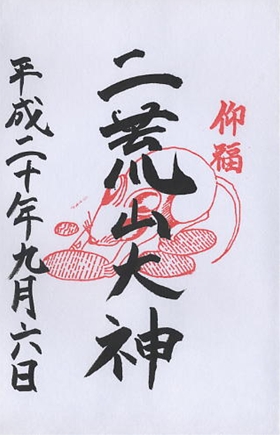 仰福
二荒山大神
平成二十年九月六日